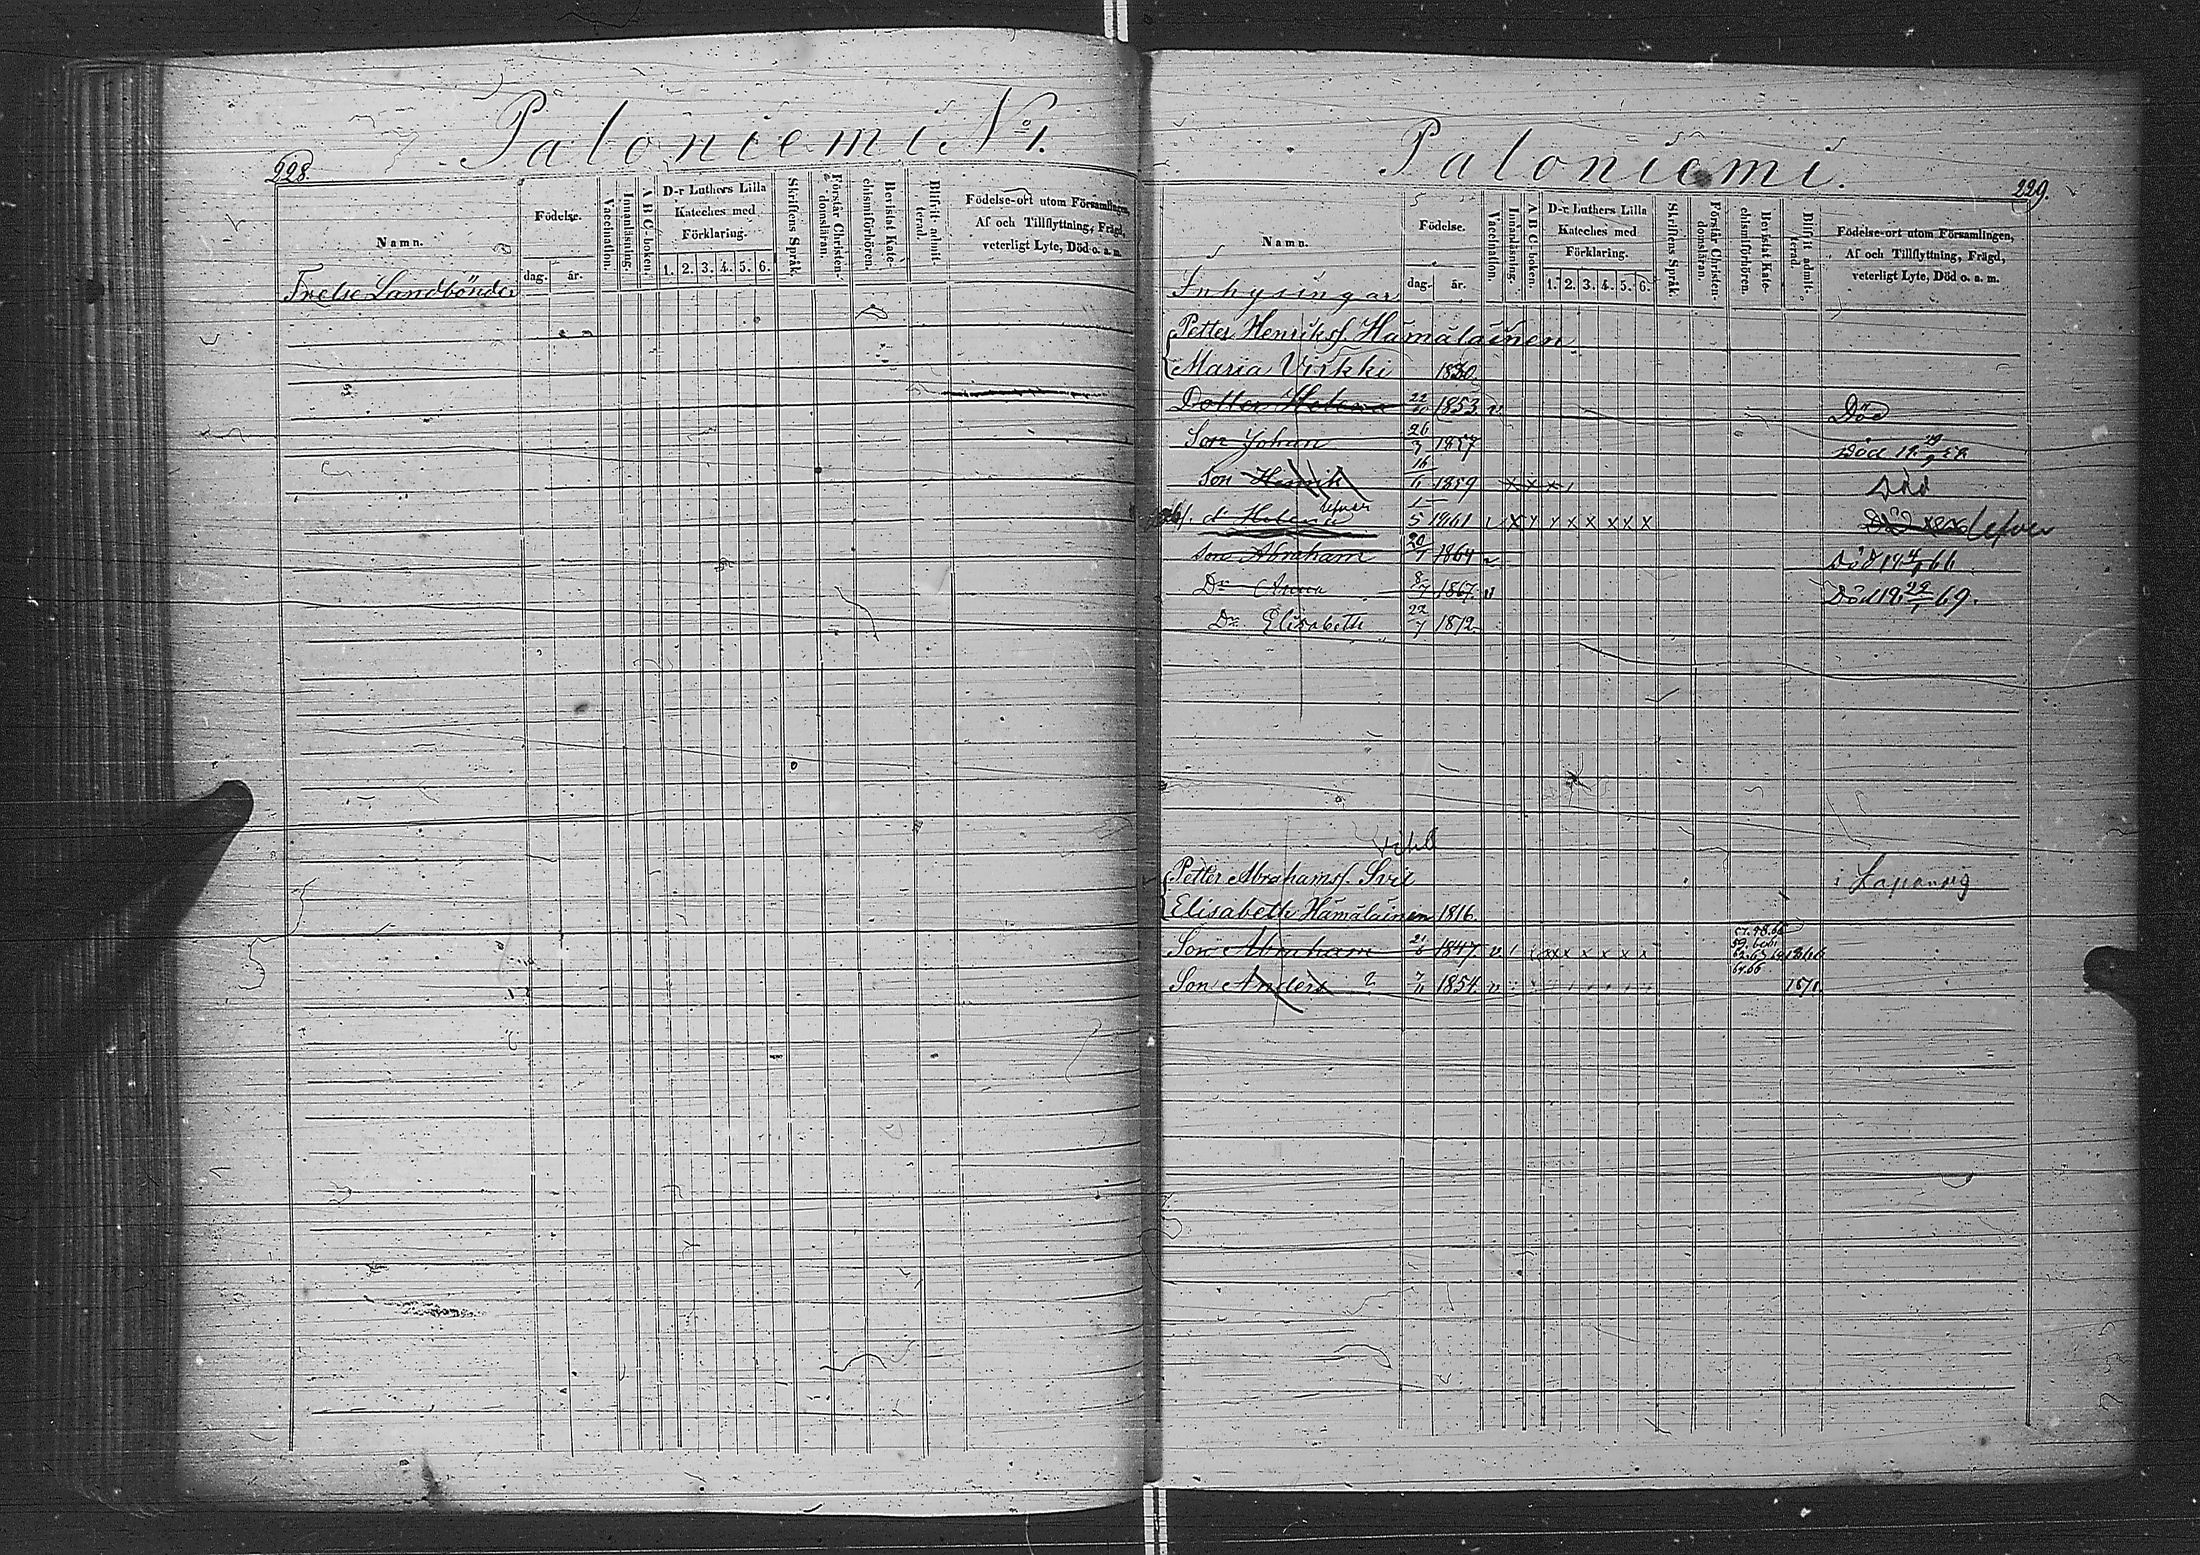 Paloniemi No 1.
228.
Namn.
Födelse.
dag.
år.
Vaccination.
Innanläsning.
A B C-boken.
D-r Luthers Lilla
Kateches med
Förklaring.
1. 2. 3. 4. 5. 6.
Skriftens Språk.
Förstår Christen-
domsläran.
Bevistat Kate-
chismiförhören.
Blifvit admit-
terad.
Födelse-ort utom Församlingen,
Af och Tillflyttning, Frägd,
veterligt Lyte, Död o. s. m.
Frelse Landbönder
Paloniemi.
229.
Namn.
Födelse.
dag.
år.
Vaccination.
Innanläsning.
A B C-boken.
D-r Luthers Lilla
Kateches med
Förklaring.
1. 2. 3. 4. 5. 6.
Skriftens Språk.
Förstår Christen-
domsläran.
Bevistat Kate-
chismiförhören.
Blifvit admit-
terad.
Födelse-ort utom Församlingen,
Af och Tillflyttning, Frägd,
veterligt Lyte, Död o. s. m.
Inhysingar
Petter Henriksf. Hämäläinen
Maria Virkki 1830
Dotter Helena 1853 v Död
Son Johan 26/3 1857 Död
Son Henrik 16/6 1859 x x x Död
d Helena lefver 1861 x x x x x x lefver
Son Abraham 20/1 1864 v Död 66
Dr Anna 1867 v Död 69.
Dr Elisabeth 22/7 1872
Petter Abrahamsf.
i
Elisabeth Hämäläinen 1816
Son Abraham 21/6 1847. v x x x x x
Son Anders ? 7/11 1854 v 1871.